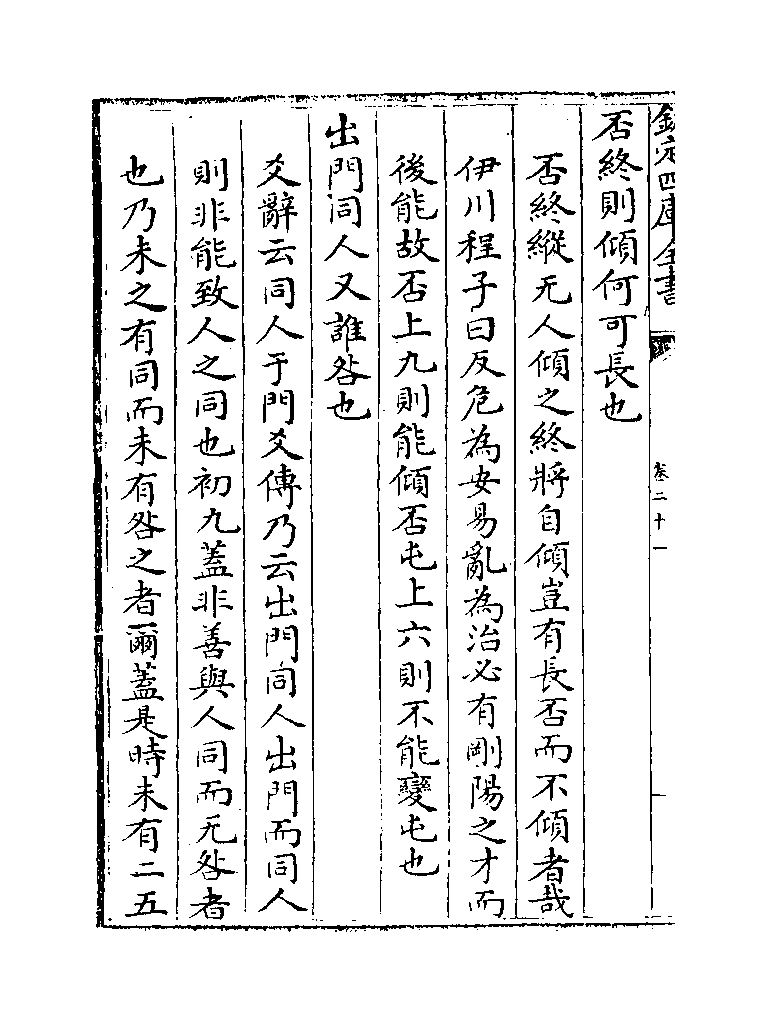 欽定四庫全書
卷二十一
否終則傾何可長也
否終縱无人傾之終將自傾豈有長否而不傾者哉
伊川程子曰反危為安易亂為治必有剛陽之才而
後能故否上九則能傾否屯上六則不能變屯也
出門同人又誰咎也
爻辭云同人于門爻傳乃云出門同人出門而同人
則非能致人之同也初九蓋非善與人同而无咎者
也乃未之有同而未有咎之者爾蓋是時未有二五